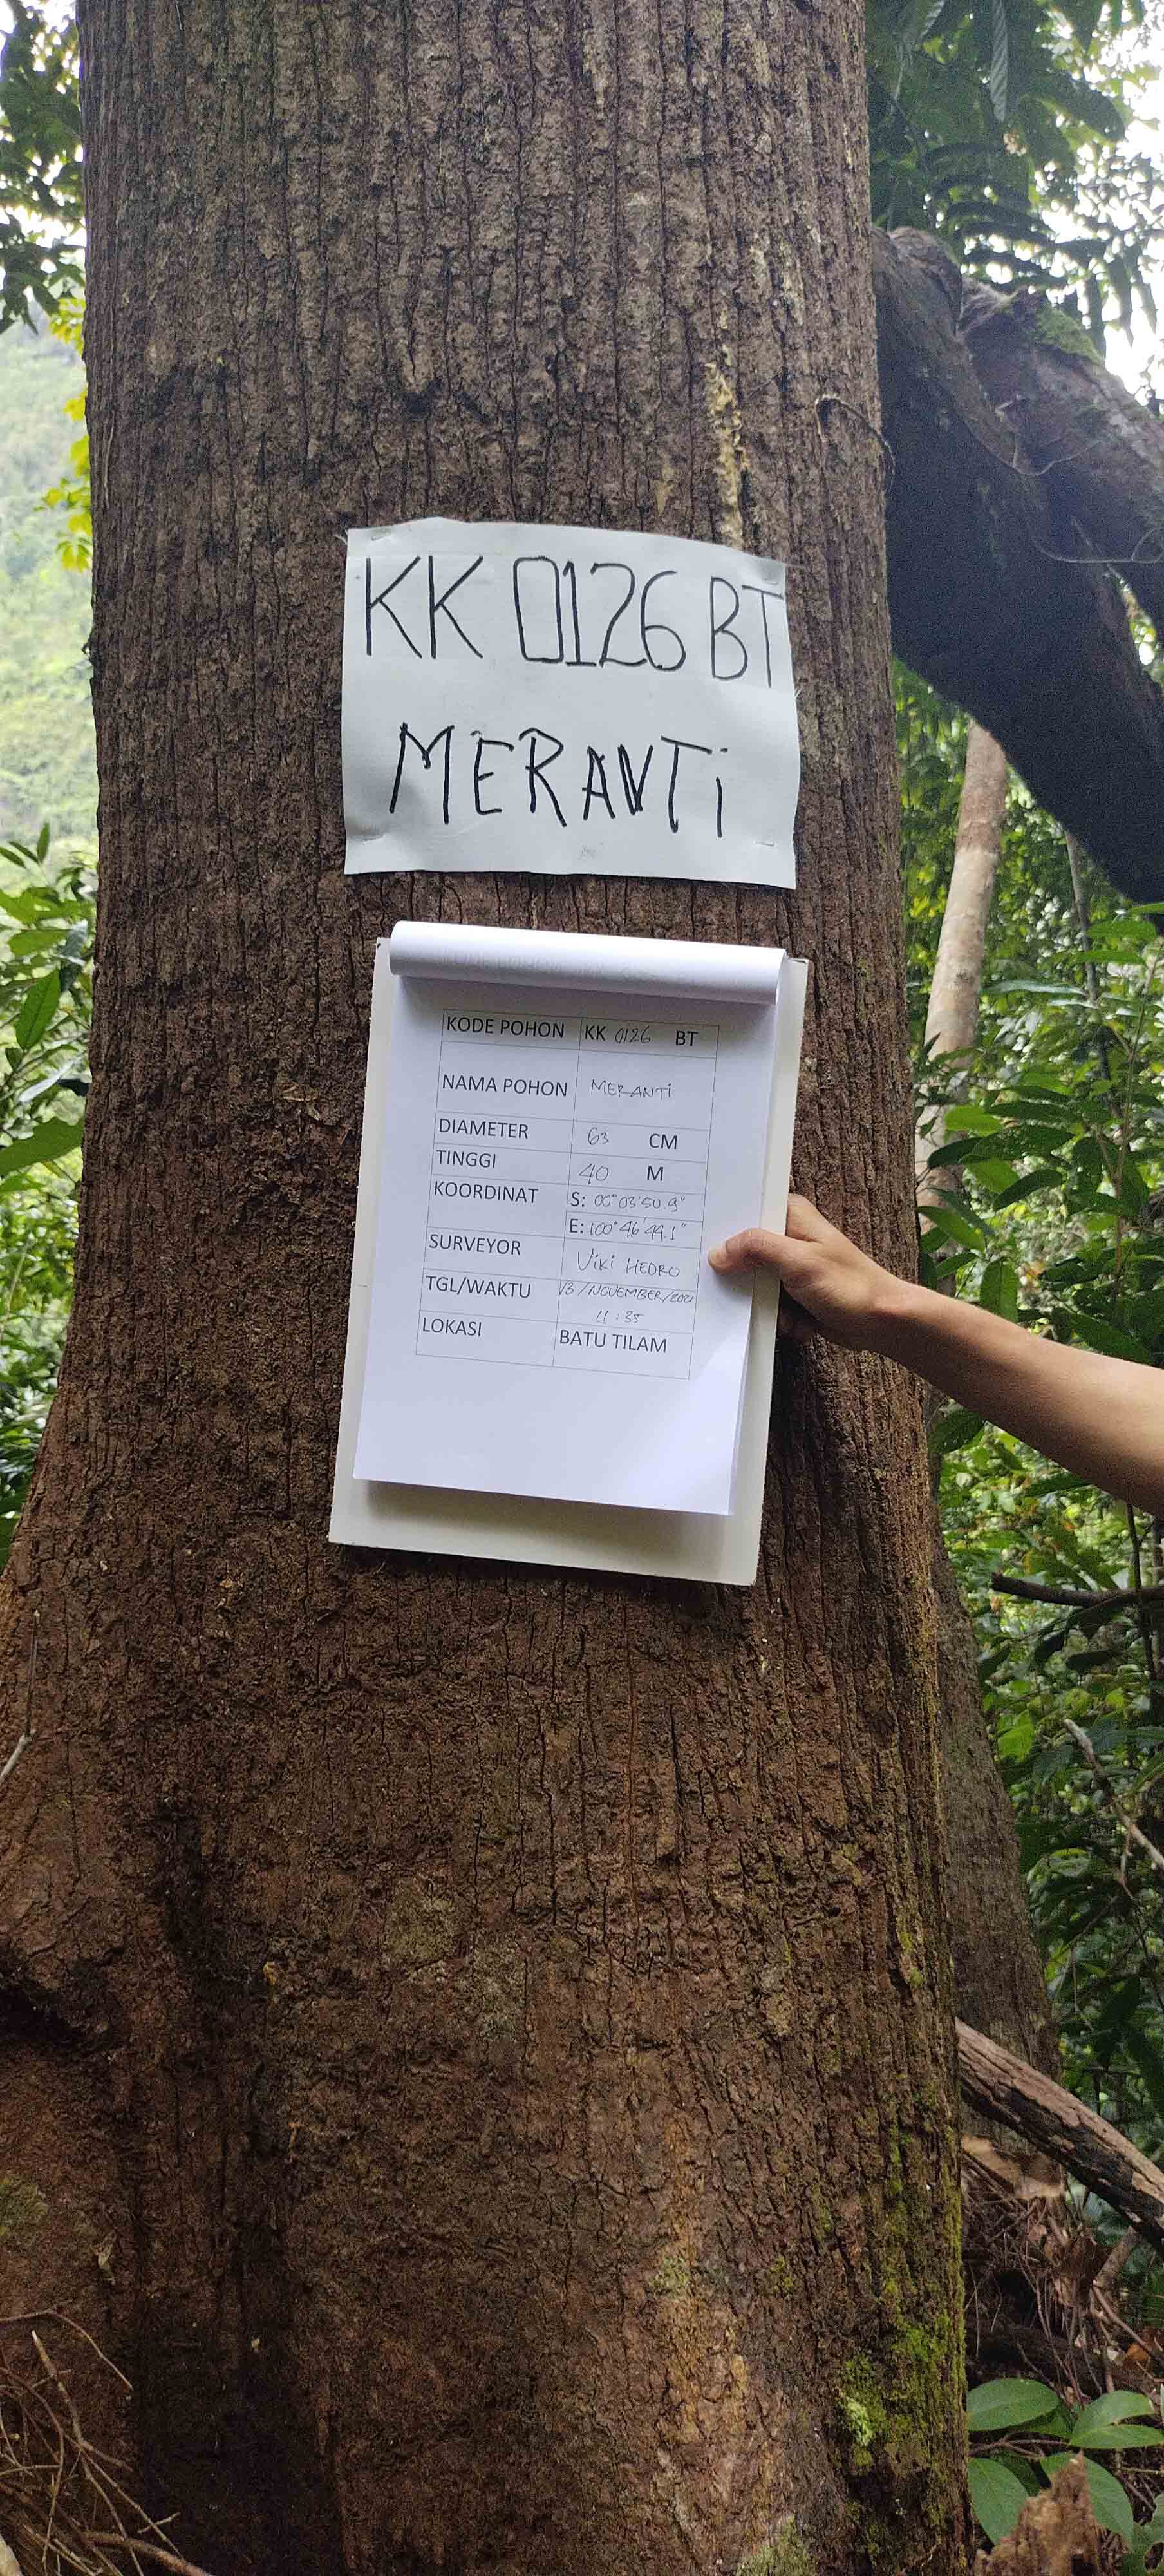 KK 0126 BT
MERANTi
KODE POHON KK 0126 BT
NAMA POHON MERANTi
DIAMETER 63 CM
TINGGI 40 M
KOORDINAT S: 00°03'50.9"
E: 100°46'44.1"
SURVEYOR ViKi HEDRO
TGL/WAKTU 13/NOVEMBER/2021
11:35
LOKASI BATU TILAM